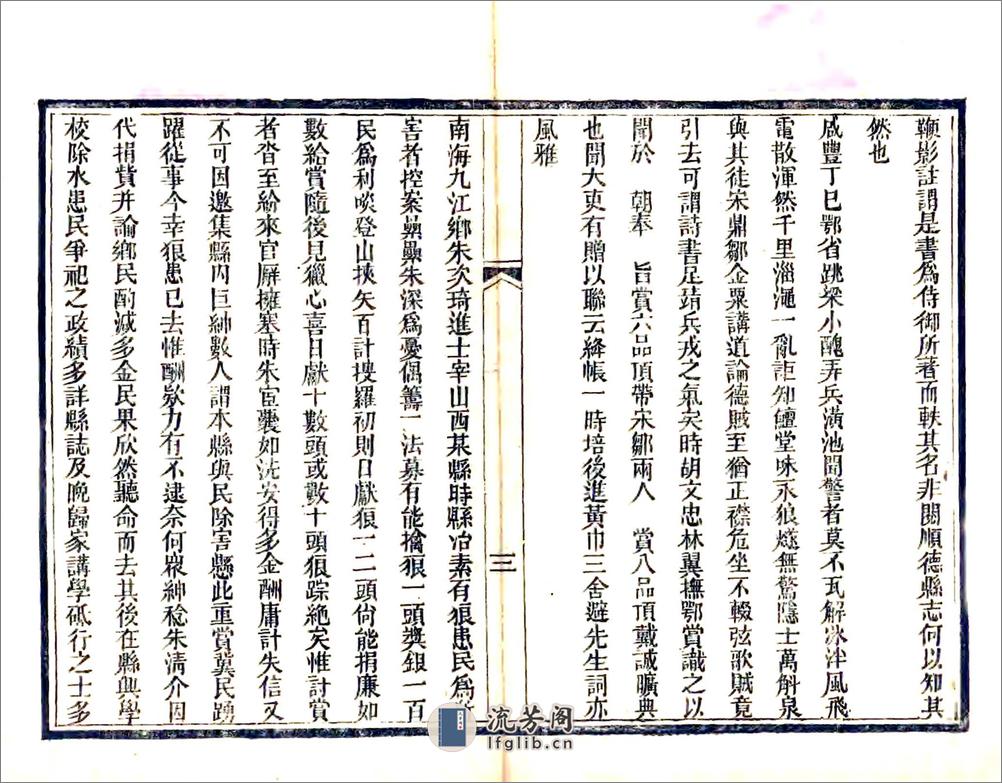 鞭影註謂是書爲侍御所著而軼其名非閱順德縣志何以知其
然也
咸豐丁巳鄂省跳梁小醜弄兵潢池聞警者莫不瓦解冰泮風飛
電散渾然千里淄澠一亂詎知鱣堂味永狼燧無驚隱士萬斛泉
與其徒宋鼎鄒金粟講道論德賊至猶正襟危坐不輟弦歌賊竟
引去可謂詩書足靖兵戎之氣矣時胡文忠林翼撫鄂賞識之以
聞於 朝奉 旨賞六品頂帶宋鄒兩人 賞八品頂戴誠曠典
也聞大吏有贈以聯云絳帳一時培後進黃巾三舍避先生詞亦
風雅
三
南海九江鄉朱次琦進士宰山西某縣時縣冶素有狼患民爲
害者控案纍纍朱深爲憂偶籌一法募有能擒狼一頭獎銀一百
民爲利啖登山挾矢百計搜羅初則日獻狼一二頭尙能捐廉如
數給賞隨後見獵心喜日獻十數頭或數十頭狼踪絕矣惟討賞
者沓至紛來官廨擁塞時朱宦囊如洗安得多金酬庸計失信又
不可因邀集縣內巨紳數人謂本縣與民除害懸此重賞冀民踴
躍從事今幸狼患已去惟酬欵力有不逮奈何衆紳稔朱淸介因
代捐貲幷論鄉民酌減多金民果欣然聽命而去其後在縣興學
校除水患民爭祀之政績多詳縣誌及晩歸家講學砥行之士多
流芳阁
lfglib.cn